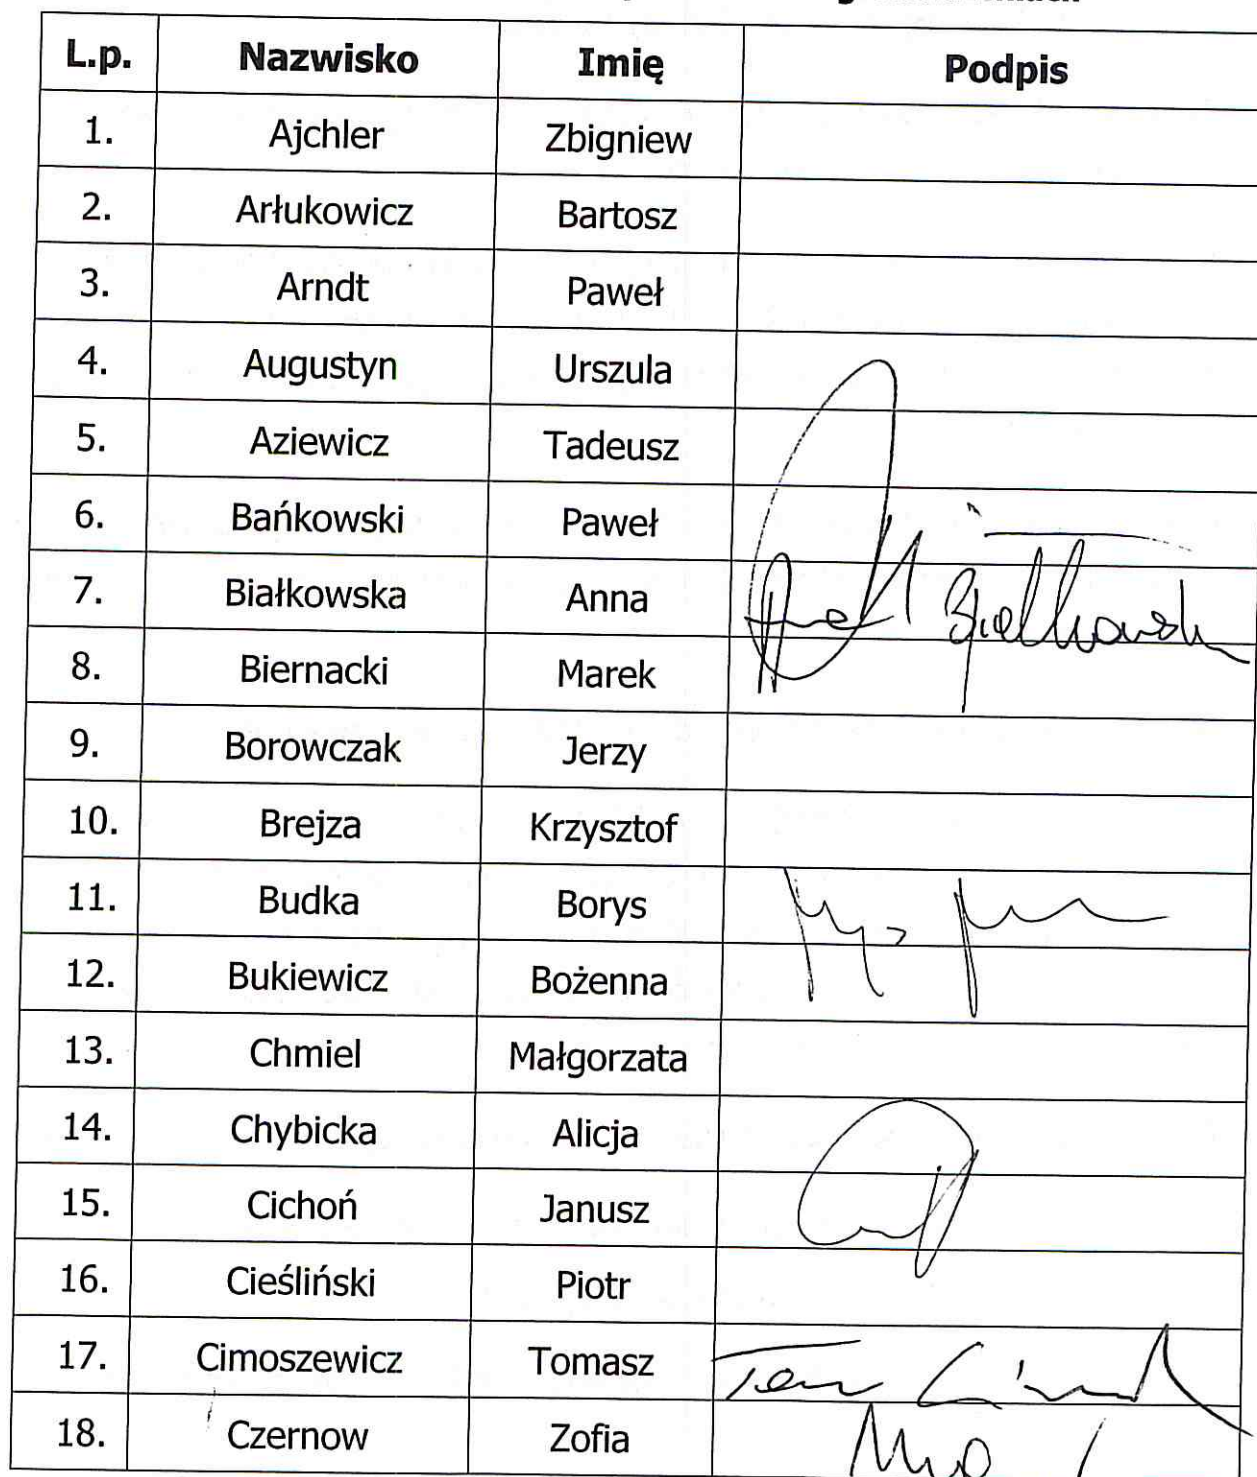 L.p. Nazwisko Imię Podpis
1. Ajchler Zbigniew
2. Arłukowicz Bartosz
3. Arndt Paweł
4. Augustyn Urszula
5. Aziewicz Tadeusz
6. Bańkowski Paweł
7. Białkowska Anna
8. Biernacki Marek
9. Borowczak Jerzy
10. Brejza Krzysztof
11. Budka Borys
12. Bukiewicz Bożenna
13. Chmiel Małgorzata
14. Chybicka Alicja
15. Cichoń Janusz
16. Cieśliński Piotr
17. Cimoszewicz Tomasz
18. Czernow Zofia